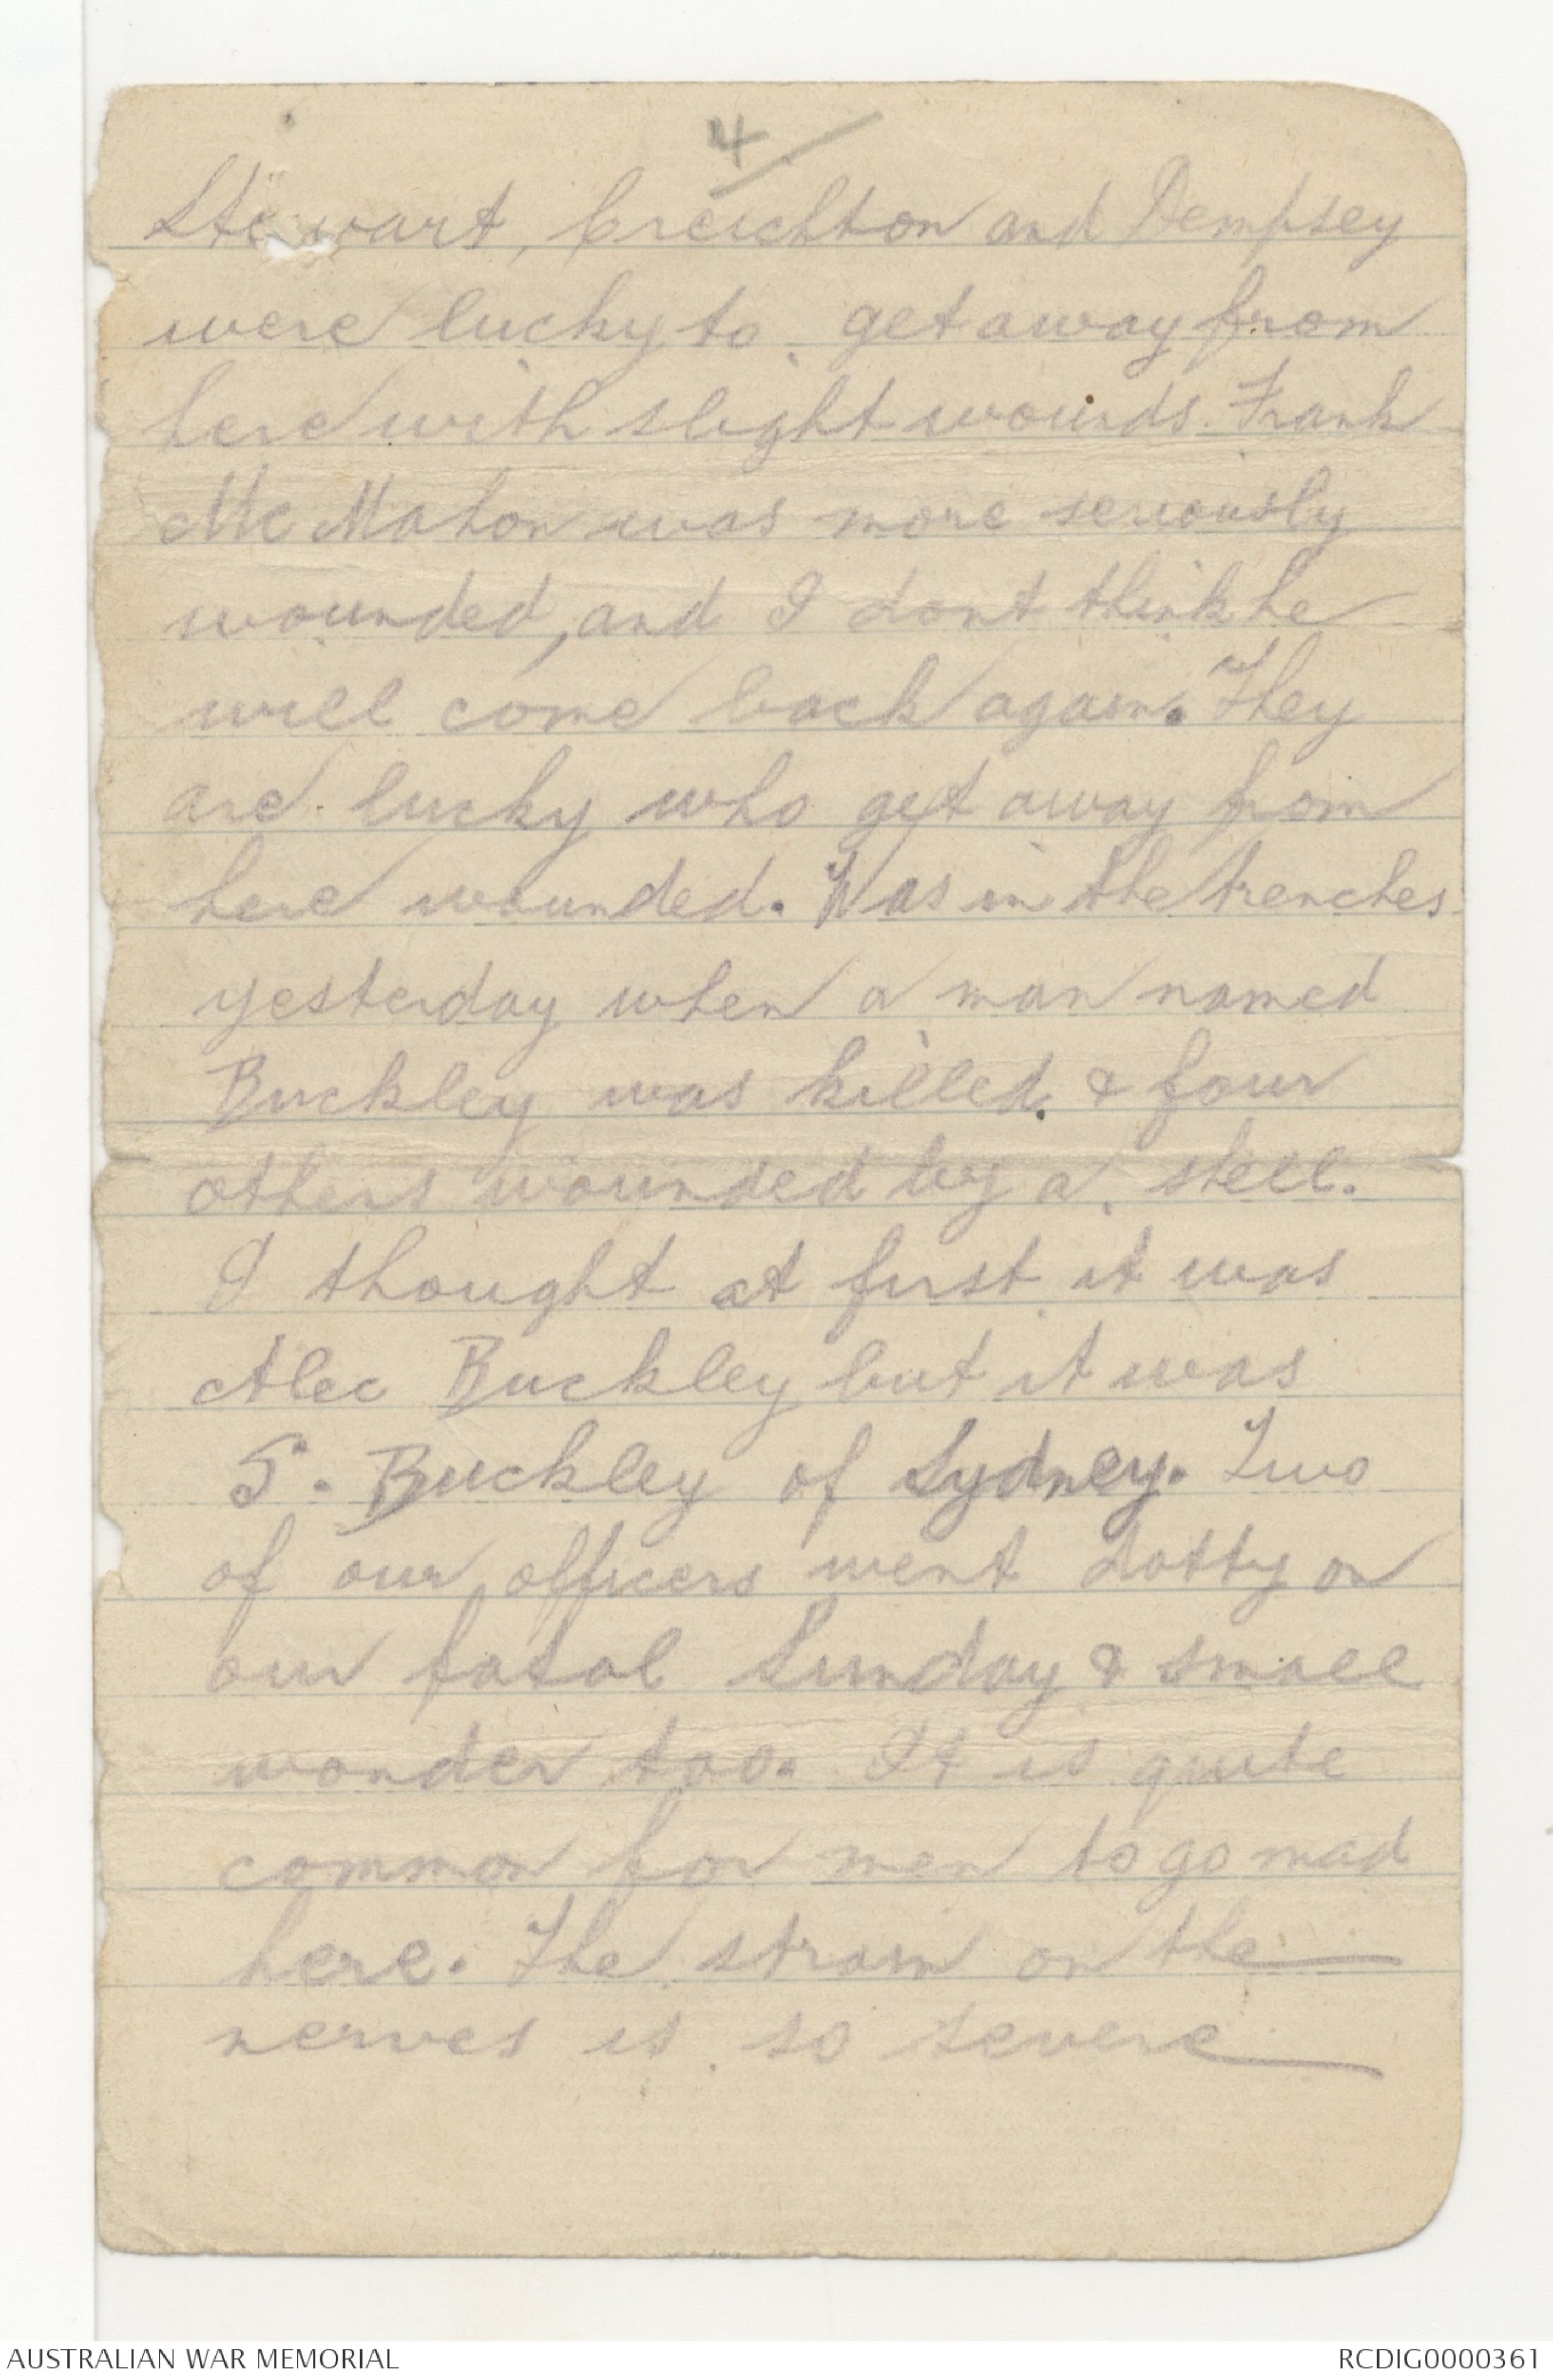 4/
Stewart, Creichton and Dempsey
were lucky to get away from
here with slight wounds. Frank
McMahon was more seriously
wounded, and I dont think he
will come back again. They
are lucky who get away from
here wounded. Was in the trenches
yesterday when a man named
Buckley was killed & four
others wounded by a shell.
I thought at first it was
Alec Buckley but it was
S. Buckley of Sydney. Two
of our officers went dotty on
our fatal Sunday & small
wonder too. It is quite
common for men to go mad
here. The strain on the
nerves is so severe
AUSTRALIAN WAR MEMORIAL
RCDIG0000361